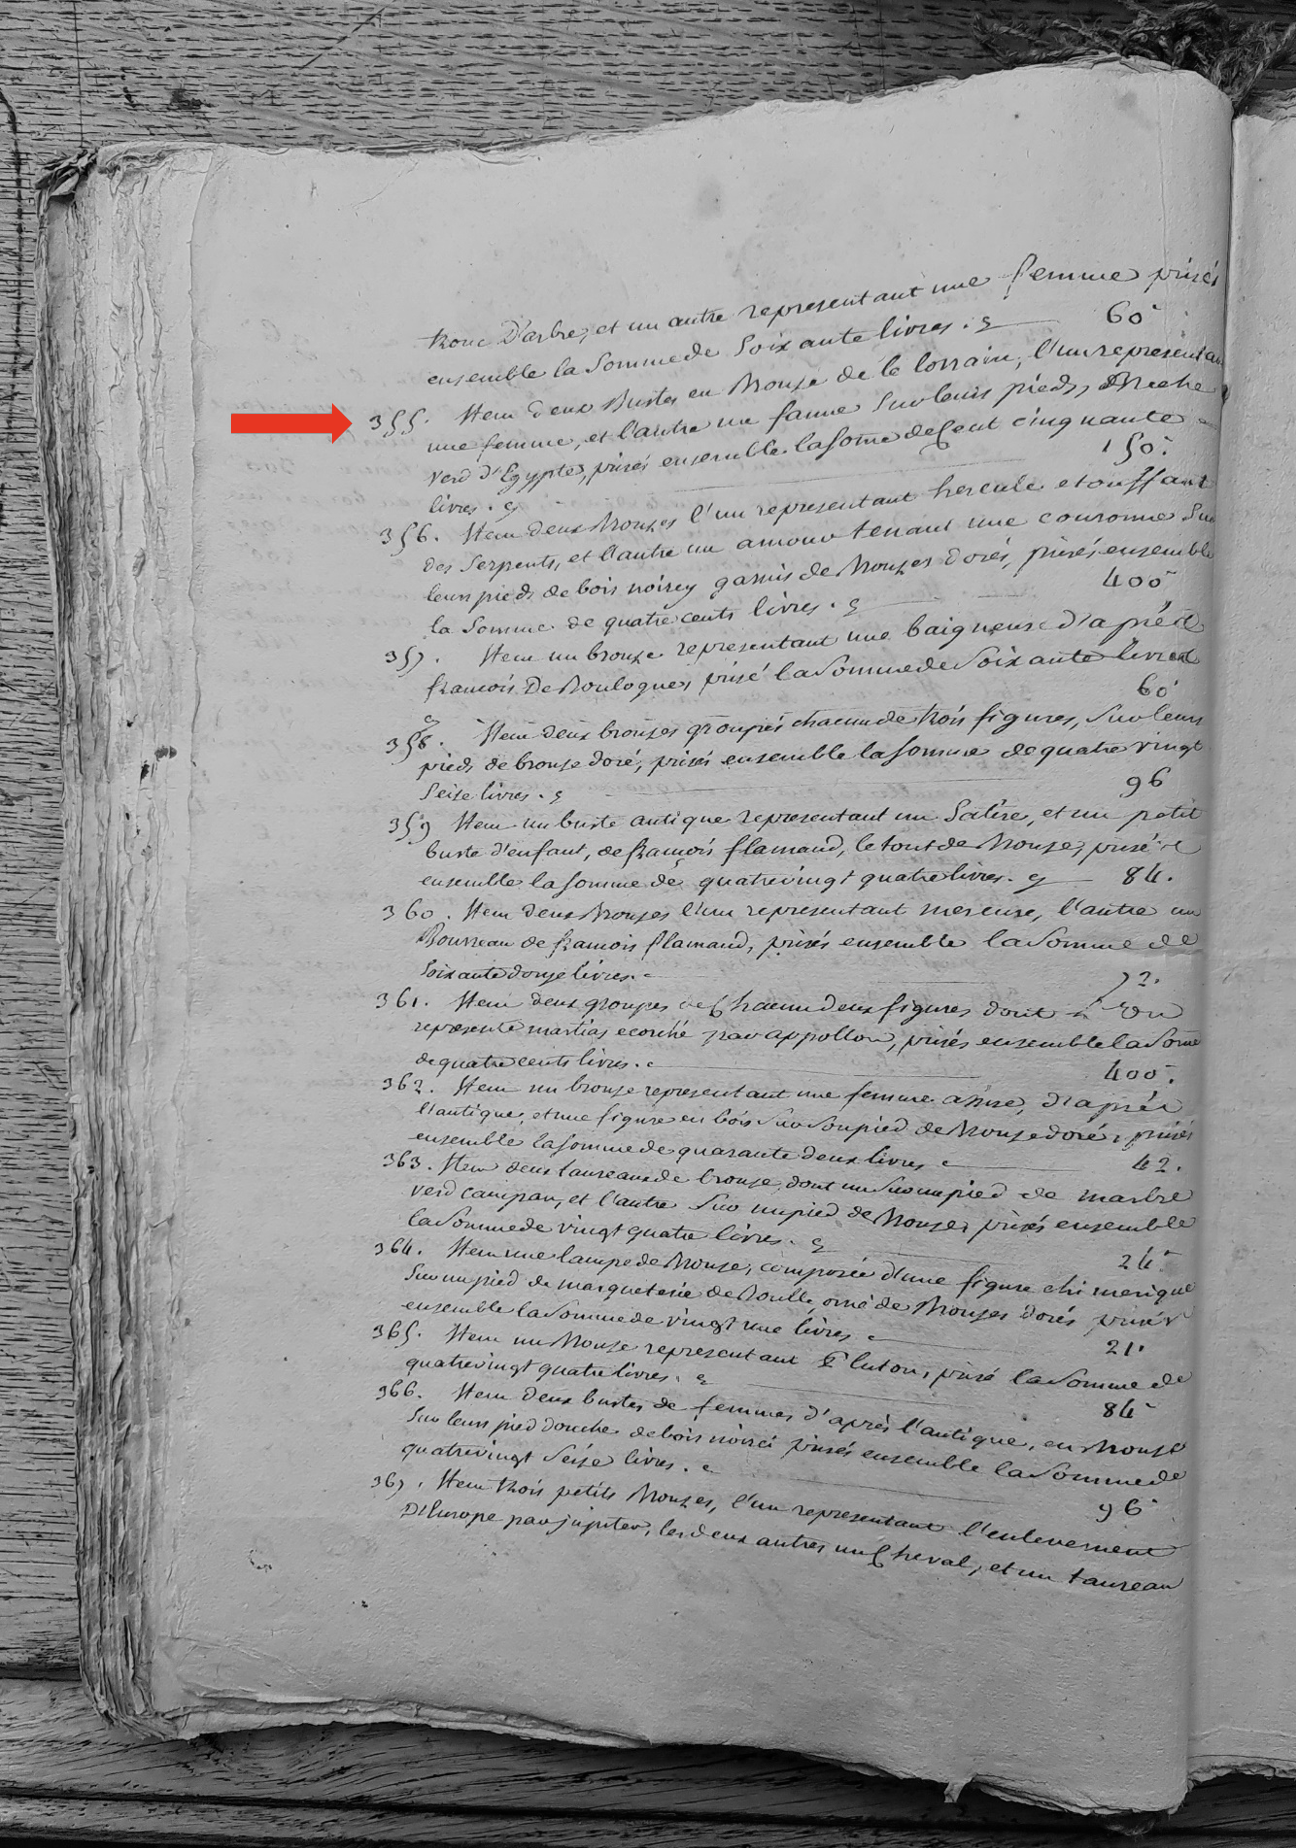 tronc D'arbre, et un autre representant une femme prisés
ensemble la Somme de Soixante livres. 60
355. Item deux Bustes en Bronze de le lorrain, l'un representant
une femme, et l'autre une faune Sur leurs pieds,
verd d'Egypte, prisés ensemble la some de Cent cinquante
livres. 150.
356. Item deux Bronzes l'un representant hercule etouffant
des Serpents, et l'autre un amour tenant une couronne Sur
leurs pieds de bois noircy garnis de Bronzes dorés, prisés ensemble
la Somme de quatre cents livres. 400
357. Item un bronze representant une baigneuse d'après
francois De Boulogne, prisé la Somme de Soixante livres
60
358. Item deux bronzes groupés chacun de trois figures, Sur leurs
pieds de bronze doré, prisés ensemble la Somme de quatre vingt
Seize livres. 96
359 Item un buste antique representant un Satire, et un petit
buste d'enfant, de françois flamand, le tout de Bronze, prisé
ensemble la Somme de quatrevingt quatre livres. 84.
360. Item deux Bronzes l'un representant mercure, l'autre un
Bourreau de francois flamand, prisés ensemble la Somme de
Soixante douze livres. 72.
361. Item deux groupes de Chacun deux figures dont L'un
represente martias ecorché par appollon, prisés ensemble la Somme
de quatre cents livres. 400.
362. Item un bronze representant une femme assise, d'après
l'antique, et une figure en bois Sur Son pied de Bronze doré, prisés
ensemble la Somme de quarante deux livres 42.
363. Item deux taureaux de bronze, dont un Sur un pied de marbre
verd campan, et l'autre Sur un pied de Bronze, prisés ensemble
la Somme de vingt quatre livres. 24.
364. Item une lampe de Bronze, composée d'une figure chimerique
Sur un pied de marqueterie de Boulle, orné de Bronzes dorés prisés
ensemble la Somme de vingt une livres 21.
365. Item un Bronze representant Pluton, prisé la Somme de
quatrevingt quatre livres. 84
366. Item deux bustes de femmes d'après l'antique, en Bronze
Sur leurs pied douche de bois noirci prisés ensemble la Somme de
quatrevingt Seize livres. 96
367. Item trois petits Bronzes, l'un representant l'enlevement
D'Europe par jupiter, les deux autres un Cheval, et un taureau